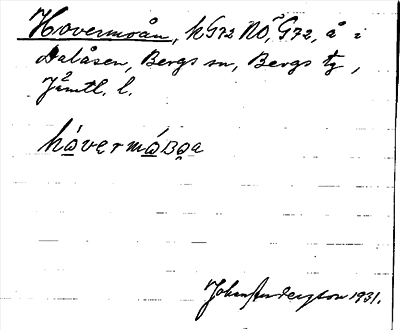 Hovermoån, k G72 NO, G72, å i
Dalåsen, Bergs sn, Bergs tg,
Jämtl. l.
Johan Anderzson 1931.